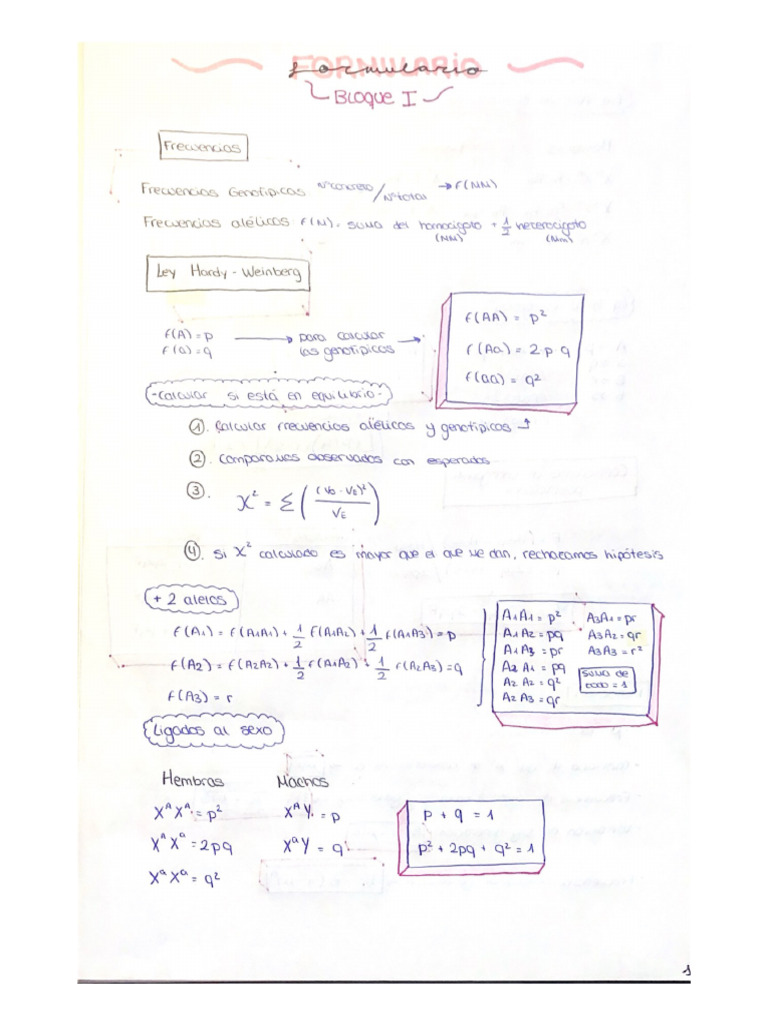 FORMULARIO
Bloque I
Frecuencias
Frecuencias Genotípicas nº concreto/nº total → f(NN)
Frecuencias alélicas f(N) = suma del homocigoto + 1/2 heterocigoto
(NN) (Nm)
Ley Hardy-Weinberg
f(A) = p → para calcular →
f(a) = q las genotípicas
f(AA) = p²
f(Aa) = 2pq
f(aa) = q²
-Calcular si está en equilibrio-
① Calcular frecuencias alélicas y genotípicas
② Comparamos observados con esperados
③ X² = Σ ((Vo - VE)² / VE)
④ Si X² calculado es mayor que el que me dan, rechazamos hipótesis
+ 2 alelos
f(A1) = f(A1A1) + 1/2 f(A1A2) + 1/2 f(A1A3) = p
f(A2) = f(A2A2) + 1/2 f(A1A2) + 1/2 f(A2A3) = q
f(A3) = r
A1A1 = p² A3A1 = pr
A1A2 = pq A3A2 = qr
A1A3 = pr A3A3 = r²
A2A1 = pq
A2A2 = q²
A2A3 = qr
suma de
todo = 1
Ligados al sexo
Hembras Machos
XᴬXᴬ = p² XᴬY = p
XᴬXᵃ = 2pq XᵃY = q
XᵃXᵃ = q²
p + q = 1
p² + 2pq + q² = 1
1